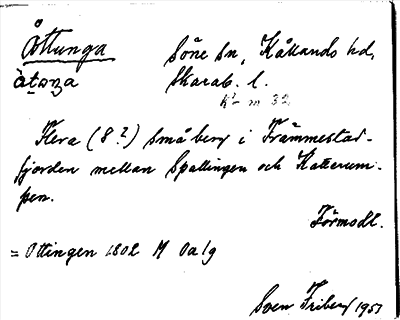 Åttunga Söne sn, Kållands hd,
åtaŋa Skarab. l.
Flera (8?) små berg i Frammestad-
fjorden mellan Spallingen och Katterum-
pen.
Förmodl.
= Ottingen 1802 M Oa/g
Sven Friberg 1951